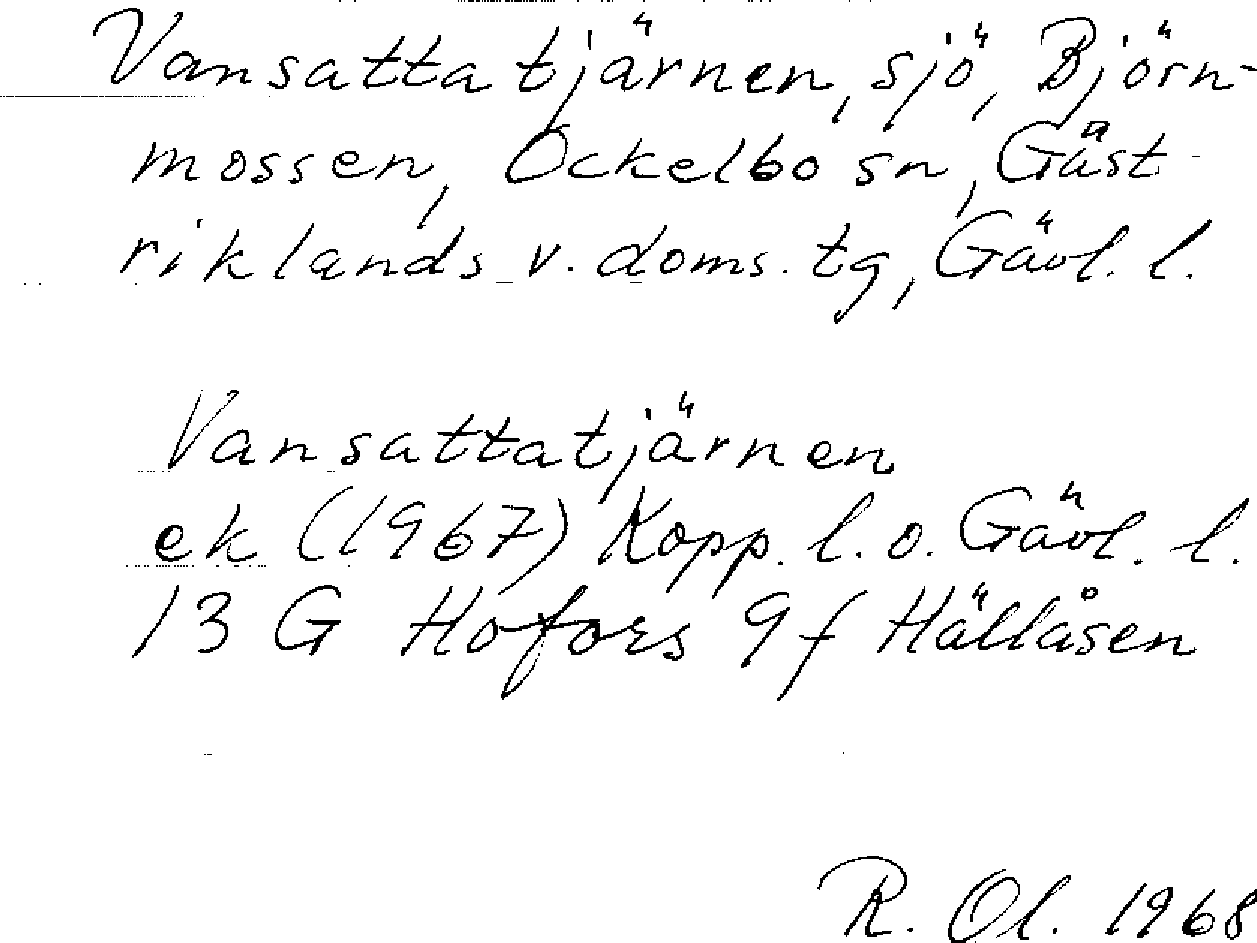 Vansattatjärnen, sjö, Björn-
mossen, Ockelbo sn, Gäst-
riklands v. doms. tg, Gävl. l.
Vansattatjärnen
ek (1967) Kopp. l. o. Gävl. l.
13 G Hofors 9f Hällåsen
R. Ol. 1968